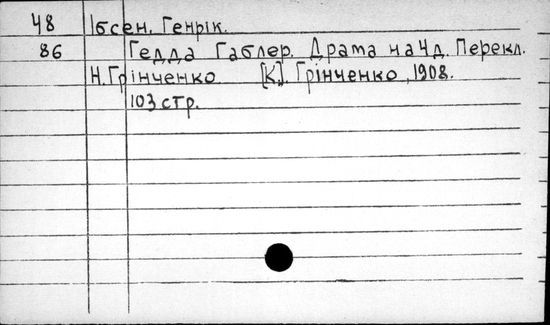 48 Ібсен, Генрік.
86 Гедда Габлер. Драма на 4 д. Перекл.
Н. Грінченко [К.]. Грінченко, 1908.
103 стр.